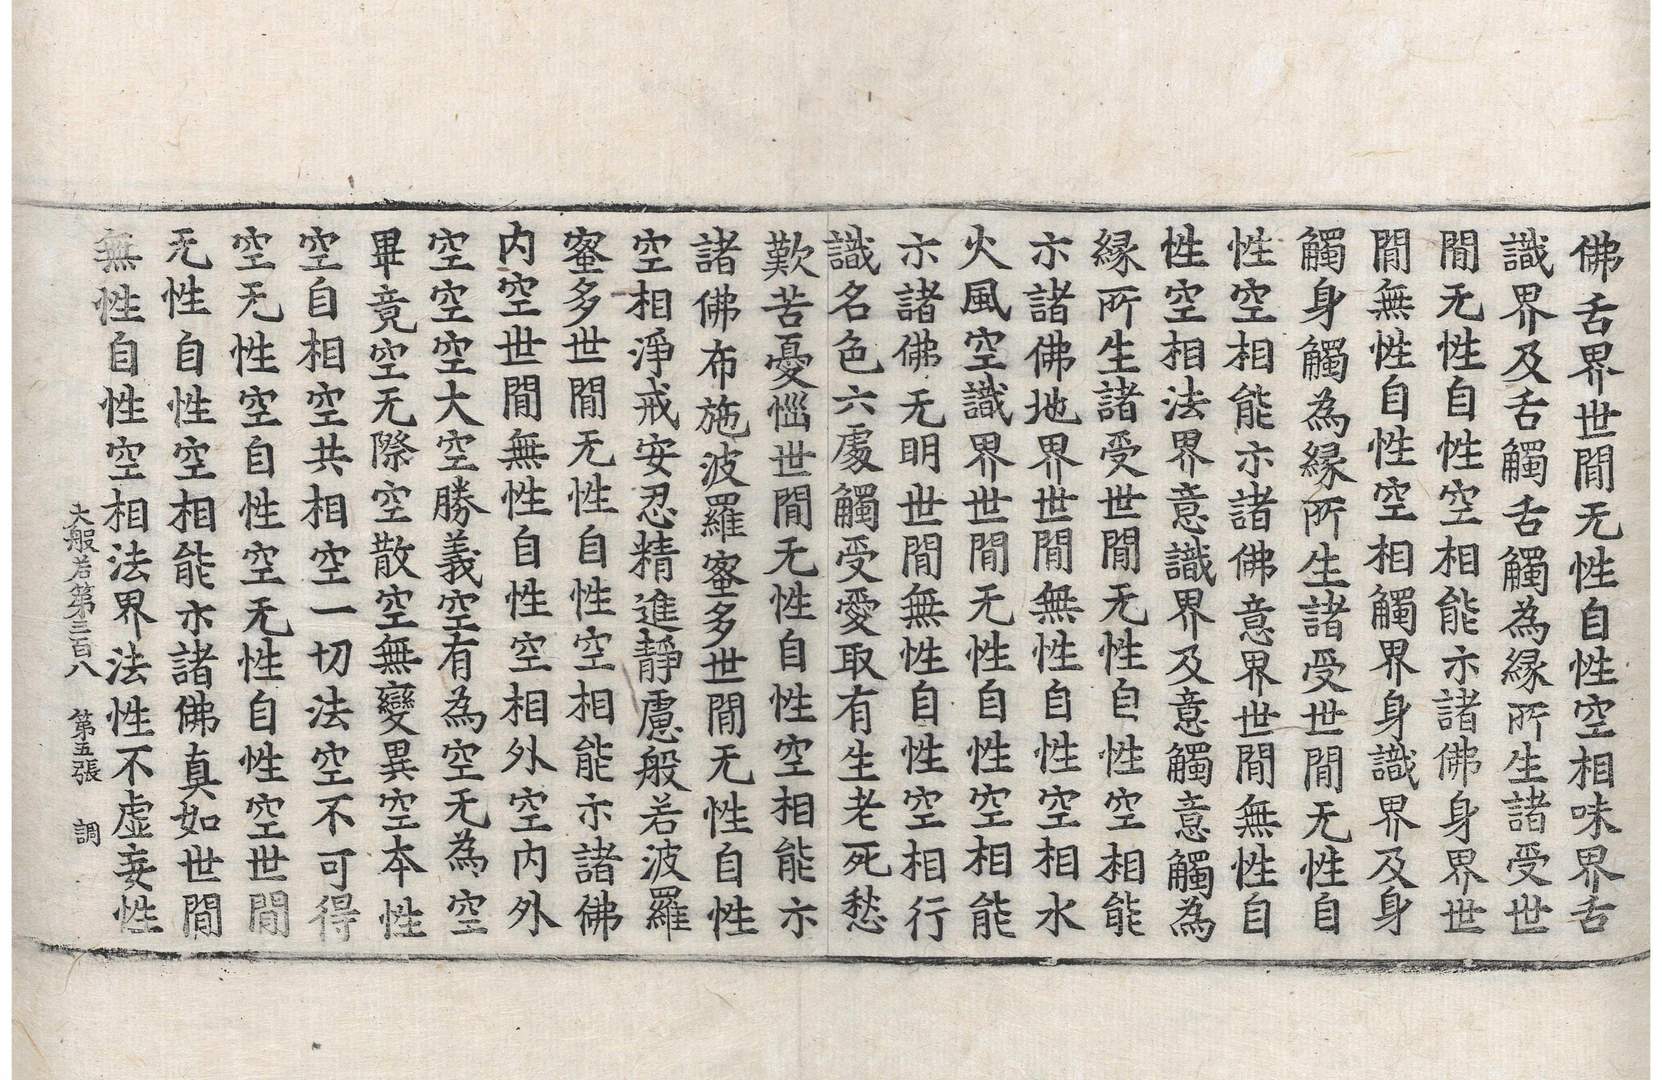 佛舌界世間无性自性空相味界舌
識界及舌觸舌觸為縁所生諸受世
間无性自性空相能示諸佛身界世
間無性自性空相觸界身識界及身
觸身觸為縁所生諸受世間无性自
性空相能示諸佛意界世間無性自
性空相法界意識界及意觸意觸為
縁所生諸受世間无性自性空相能
示諸佛地界世間無性自性空相水
火風空識界世間无性自性空相能
示諸佛无明世間無性自性空相行
識名色六處觸受愛取有生老死愁
歎苦憂惱世間无性自性空相能示
諸佛布施波羅蜜多世間无性自性
空相淨戒安忍精進靜慮般若波羅
蜜多世間无性自性空相能示諸佛
内空世間無性自性空相外空内外
空空空大空勝義空有為空无為空
畢竟空无際空散空無變異空本性
空自相空共相空一切法空不可得
空无性空自性空无性自性空世間
无性自性空相能示諸佛真如世間
無性自性空相法界法性不虛妄性
大般若第三百八　第五張　調